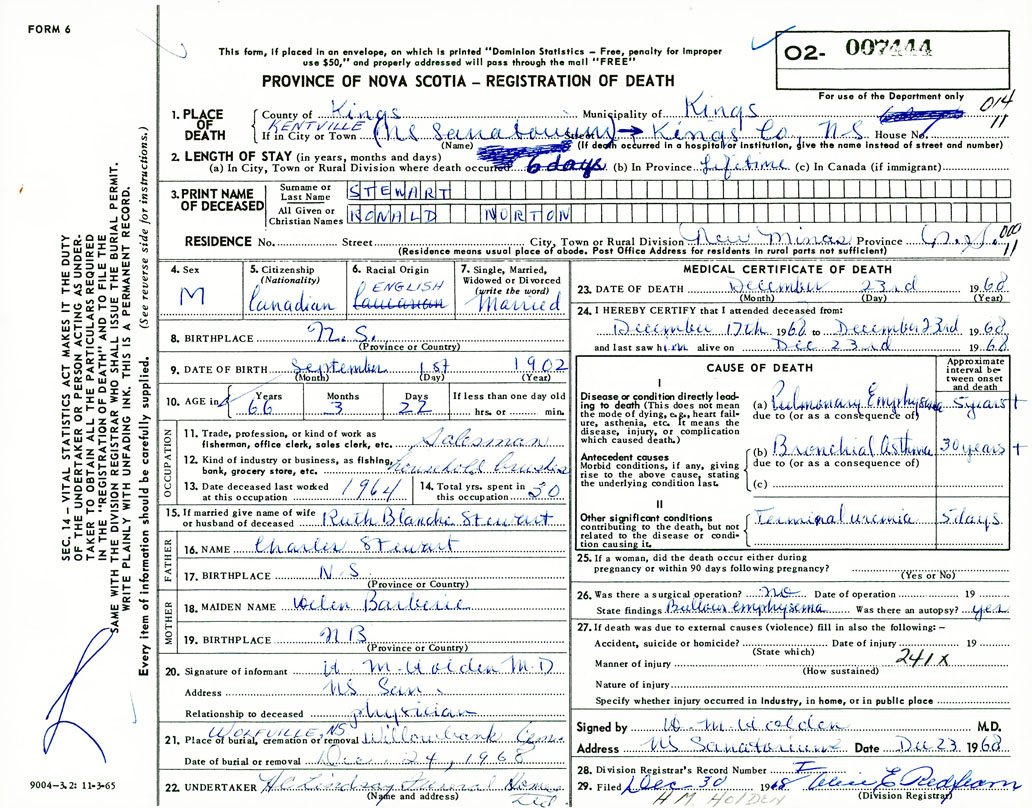 FORM 6
This form, if placed in an envelope, on which is printed "Dominion Statistics – Free, penalty for improper
use $50," and properly addressed will pass through the mail "FREE"
PROVINCE OF NOVA SCOTIA – REGISTRATION OF DEATH
O2- 007444
For use of the Department only
014
11
1. PLACE OF DEATH
County of Kings Municipality of Kings
If in City or Town KENTVILLE (NS Sanatorium) Street → Kings Co, N.S. House No.
(Name) (If death occurred in a hospital or institution, give the name instead of street and number)
2. LENGTH OF STAY (in years, months and days)
(a) In City, Town or Rural Division where death occurred 6 days (b) In Province Lifetime (c) In Canada (if immigrant)
3. PRINT NAME OF DECEASED
Surname or Last Name STEWART
All Given or Christian Names RONALD NORTON
RESIDENCE No. Street City, Town or Rural Division New Minas Province N.S. 000
11
(Residence means usual place of abode. Post Office Address for residents in rural parts not sufficient)
4. Sex M
5. Citizenship (Nationality) Canadian
6. Racial Origin ENGLISH Caucasian
7. Single, Married, Widowed or Divorced (write the word) Married
8. BIRTHPLACE N.S.
(Province or Country)
9. DATE OF BIRTH September 1st 1902
(Month) (Day) (Year)
10. AGE in Years 66 Months 3 Days 22 If less than one day old hrs. or min.
OCCUPATION
11. Trade, profession, or kind of work as fisherman, office clerk, sales clerk, etc. Salesman
12. Kind of industry or business, as fishing, bank, grocery store, etc. household brushes
13. Date deceased last worked at this occupation 1964
14. Total yrs. spent in this occupation 30
15. If married give name of wife or husband of deceased Ruth Blanche Stewart
FATHER
16. NAME Charles Stewart
17. BIRTHPLACE N.S.
(Province or Country)
MOTHER
18. MAIDEN NAME Helen Barberie
19. BIRTHPLACE NB
(Province or Country)
20. Signature of informant H. M. Holden M.D
Address NS San.
Relationship to deceased physician
WOLFVILLE, NS
21. Place of burial, cremation or removal Willowbank Cem.
Date of burial or removal Dec. 24, 1968
22. UNDERTAKER H C Lindsay Funeral Home Ltd
(Name and address)
MEDICAL CERTIFICATE OF DEATH
23. DATE OF DEATH December 23rd 1968
(Month) (Day) (Year)
24. I HEREBY CERTIFY that I attended deceased from:
December 17th 1968 to December 23rd 1968
and last saw him alive on Dec 23rd 1968
CAUSE OF DEATH
Approximate interval between onset and death
I
Disease or condition directly leading to death (This does not mean the mode of dying, e.g., heart failure, asthenia, etc. It means the disease, injury, or complication which caused death.)
(a) Pulmonary Emphysema 5 years +
due to (or as a consequence of)
Antecedent causes
Morbid conditions, if any, giving rise to the above cause, stating the underlying condition last.
(b) Bronchial Asthma 30 years +
due to (or as a consequence of)
(c)
II
Other significant conditions contributing to the death, but not related to the disease or condition causing it.
Terminal uremia 5 days
25. If a woman, did the death occur either during
pregnancy or within 90 days following pregnancy?
(Yes or No)
26. Was there a surgical operation? no Date of operation 19
State findings Bullous emphysema Was there an autopsy? yes
27. If death was due to external causes (violence) fill in also the following: –
Accident, suicide or homicide? Date of injury 19
(State which)
Manner of injury 241x
(How sustained)
Nature of injury
Specify whether injury occurred in Industry, home, or in public place
Signed by H. M. Holden M.D.
Address NS Sanatorium Date Dec 23 1968
28. Division Registrar's Record Number
29. Filed Dec 30 1968 Helen E Redfearn
(Division Registrar)
H M HOLDEN
SEC. 14 – VITAL STATISTICS ACT MAKES IT THE DUTY
OF THE UNDERTAKER OR PERSON ACTING AS UNDER-
TAKER TO OBTAIN ALL THE PARTICULARS REQUIRED
IN THE "REGISTRATION OF DEATH" AND TO FILE THE
SAME WITH THE DIVISION REGISTRAR WHO SHALL ISSUE THE BURIAL PERMIT.
WRITE PLAINLY WITH UNFADING INK. THIS IS A PERMANENT RECORD.
Every item of information should be carefully supplied. (See reverse side for instructions.)
9004-3.2: 11-3-65